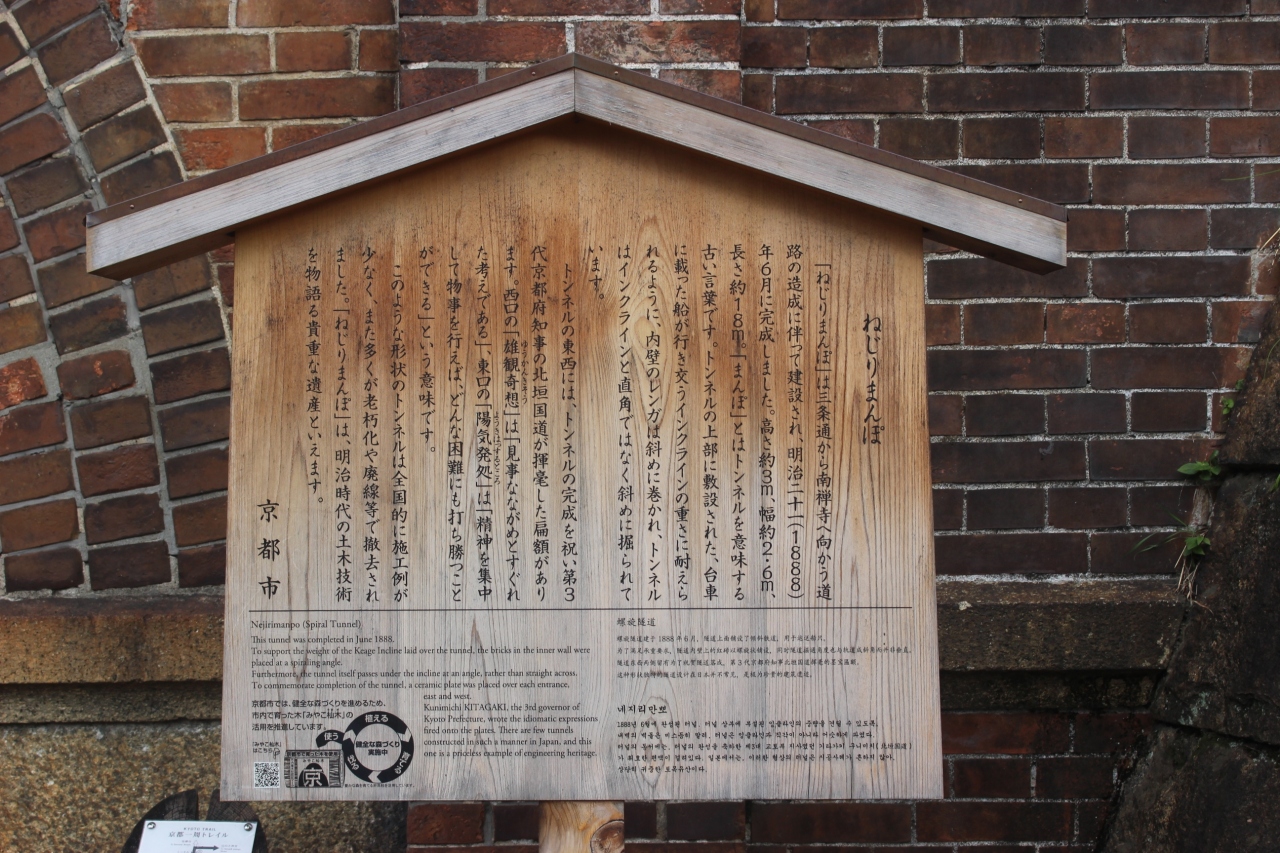 ねじりまんぽ
「ねじりまんぽ」は三条通から南禅寺へ向かう道
路の造成に伴って建設され、明治二十一(1888)
年6月に完成しました。高さ約3m、幅約2.6m、
長さ約18m。「まんぽ」とはトンネルを意味する
古い言葉です。トンネルの上部に敷設された、台車
に載った船が行き交うインクラインの重さに耐えら
れるように、内壁のレンガは斜めに巻かれ、トンネル
はインクラインと直角ではなく斜めに掘られて
います。
トンネルの東西には、トンネルの完成を祝い第3
代京都府知事の北垣国道が揮毫した扁額があり
ます。西口の「雄観奇想」は「見事なながめとすぐれ
ゆうかんきそう
た考えである」、東口の「陽気発処」は「精神を集中
ようきはっするところ
して物事を行えば、どんな困難にも打ち勝つこと
ができる」という意味です。
このような形状のトンネルは全国的に施工例が
少なく、また多くが老朽化や廃線等で撤去され
ました。「ねじりまんぽ」は、明治時代の土木技術
を物語る貴重な遺産といえます。
京都市
Nejirimanpo (Spiral Tunnel)
This tunnel was completed in June 1888.
To support the weight of the Keage Incline laid over the tunnel, the bricks in the inner wall were
placed at a spiraling angle.
Furthermore, the tunnel itself passes under the incline at an angle, rather than straight across.
To commemorate completion of the tunnel, a ceramic plate was placed over each entrance,
east and west.
Kunimichi KITAGAKI, the 3rd governor of
Kyoto Prefecture, wrote the idiomatic expressions
fired onto the plates. There are few tunnels
constructed in such a manner in Japan, and this
one is a priceless example of engineering heritage.
京都市では、健全な森づくりを進めるため、
市内で育った木「みやこ杣木」の
活用を推進しています。
「みやこ杣木」
はこちら
植える
使う
健全な森づくり
実施中
京
螺旋隧道
螺旋隧道建于1888年6月。隧道上面铺设了倾斜轨道,用于运送船只。
네지리만뽀
1888년 6월에 완성된 터널. 터널 상부에 부설된 인클라인의 중량을 견딜 수 있도록,
KYOTO TRAIL
京都一周トレイル